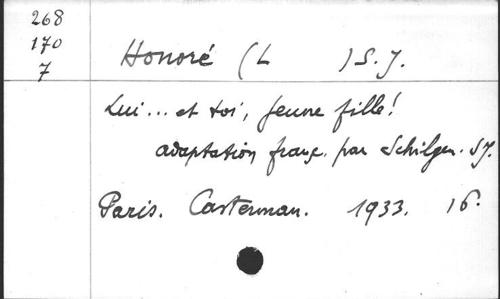 268
170
7
Honoré (L ) S.J.
Lui... et toi, jeune fille!
adaptation franç. par Schilgen. SJ.
Paris. Casterman. 1933. 16°